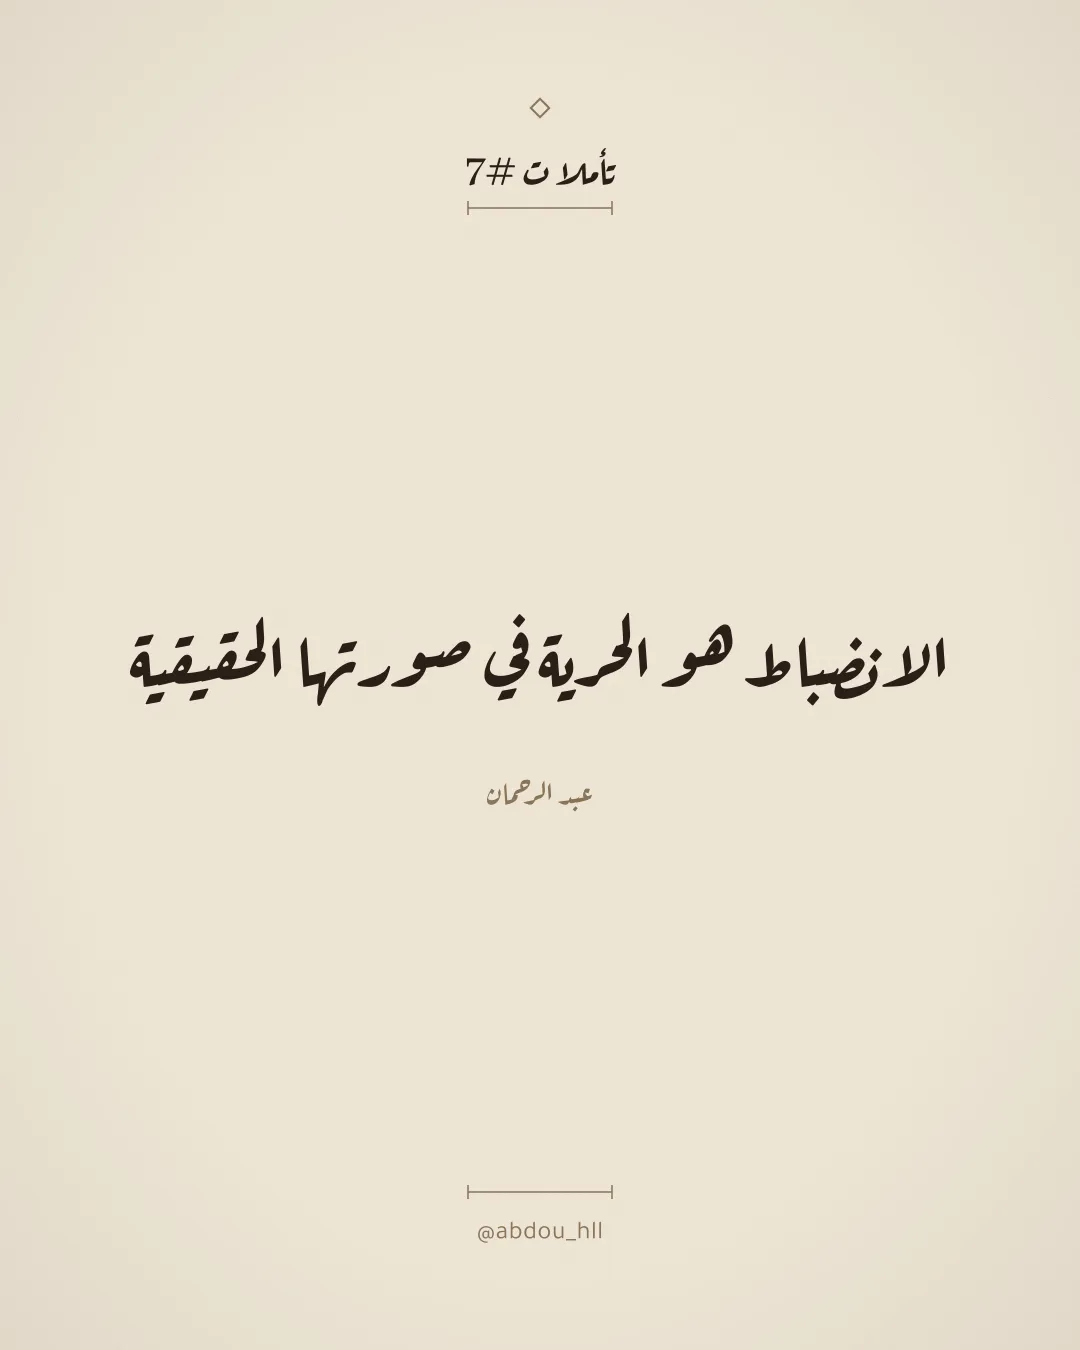 تأملات #7
الانضباط هو الحرية في صورتها الحقيقية
عبد الرحمان
@abdou_hll